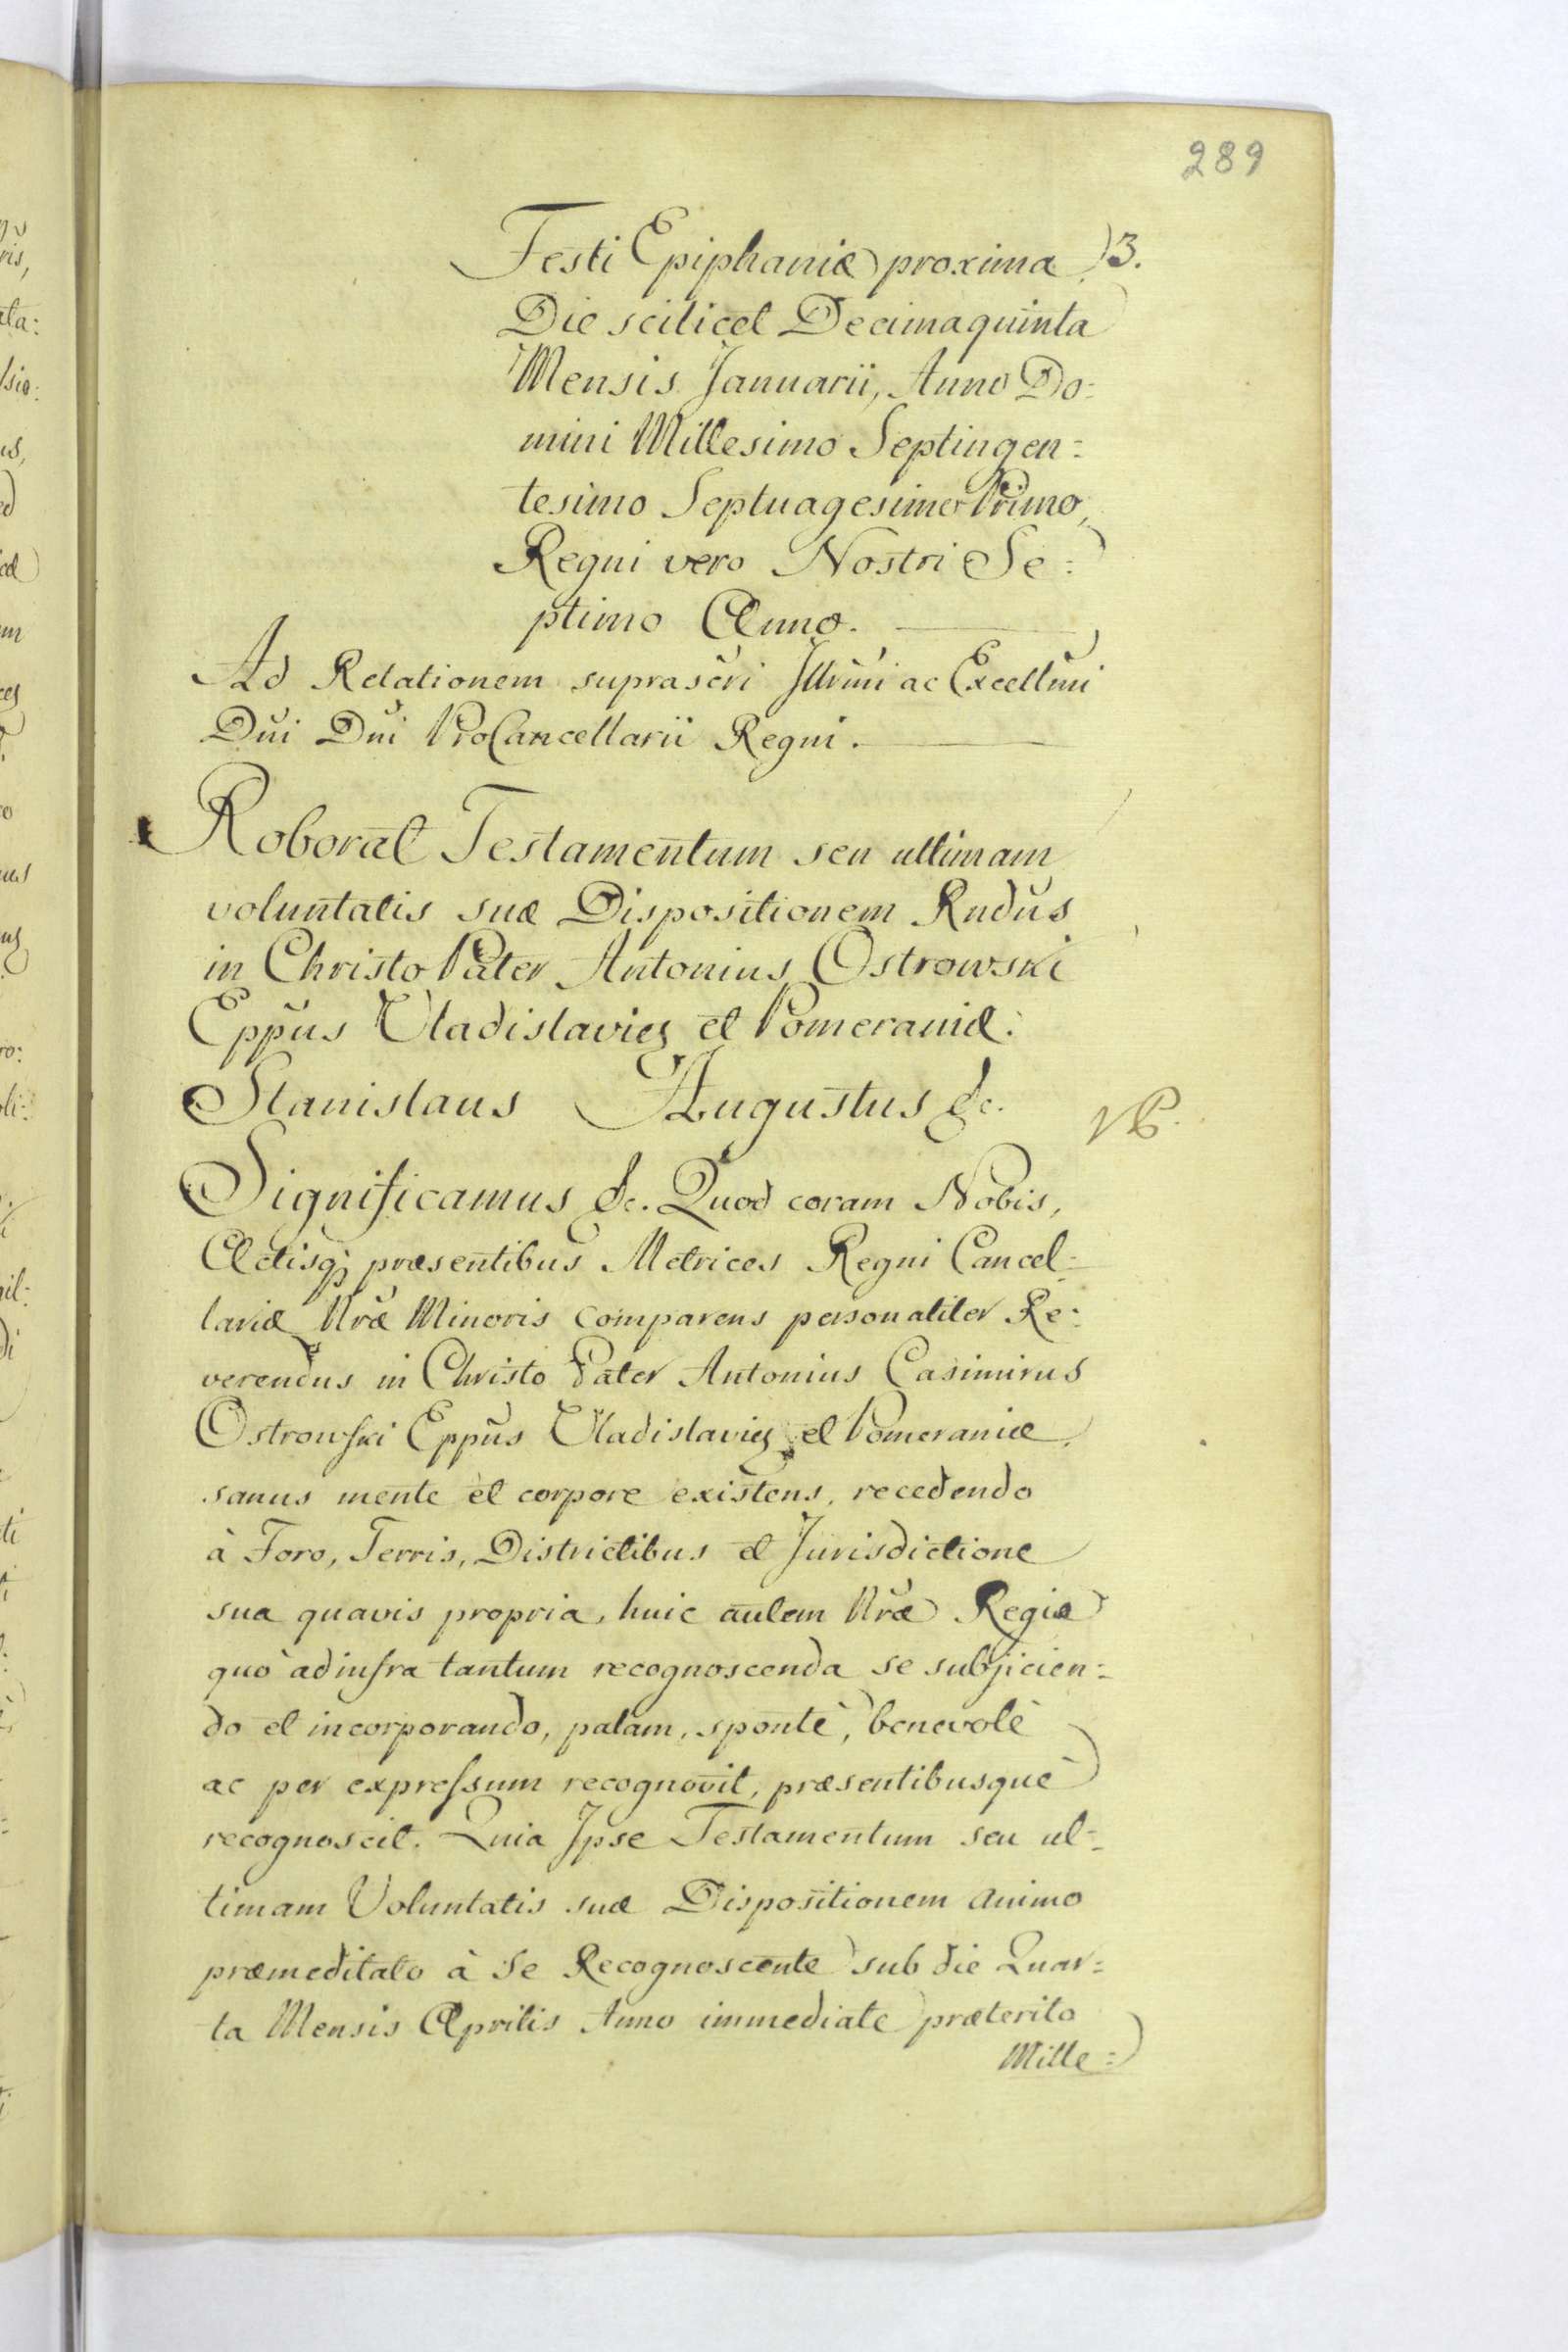 289
Festi Epiphaniæ proxima 3.
Die scilicet Decimaquinta
Mensis Januarii, Anno Do=
mini Millesimo Septingen=
tesimo Septuagesimo Primo,
Regni vero Nostri Se=
ptimo Anno.
Ad Relationem suprascri Illrmi ac Excellmi
Dni Dni ProCancellarii Regni.
Roborat Testamentum seu ultimam
voluntatis suæ Dispositionem Rndus
in Christo Pater Antonius Ostrowski
Eppus Vladislavien et Pomeraniæ.
Stanislaus Augustus &c.
Significamus &c. Quod coram Nobis,
Actisq; præsentibus Metrices Regni Cancel=
lariæ Nræ Minoris comparens personaliter Re=
verendus in Christo Pater Antonius Casimirus
Ostrowski Eppus Vladislavien et Pomeraniæ,
sanus mente et corpore existens, recedendo
à Foro, Terris, Districtibus et Jurisdictione
sua quavis propria, huic autem Nræ Regiæ
quò ad infra tantum recognoscenda se subjicien=
do et incorporando, palam, spontè, benevolè
ac per expressum recognovit, præsentibusquè
recognoscit. Quia Ipse Testamentum seu ul=
timam Voluntatis suæ Dispositionem animo
præmeditato à Se Recognoscente sub die Quar=
ta Mensis Aprilis Anno immediate præterito
Mille=